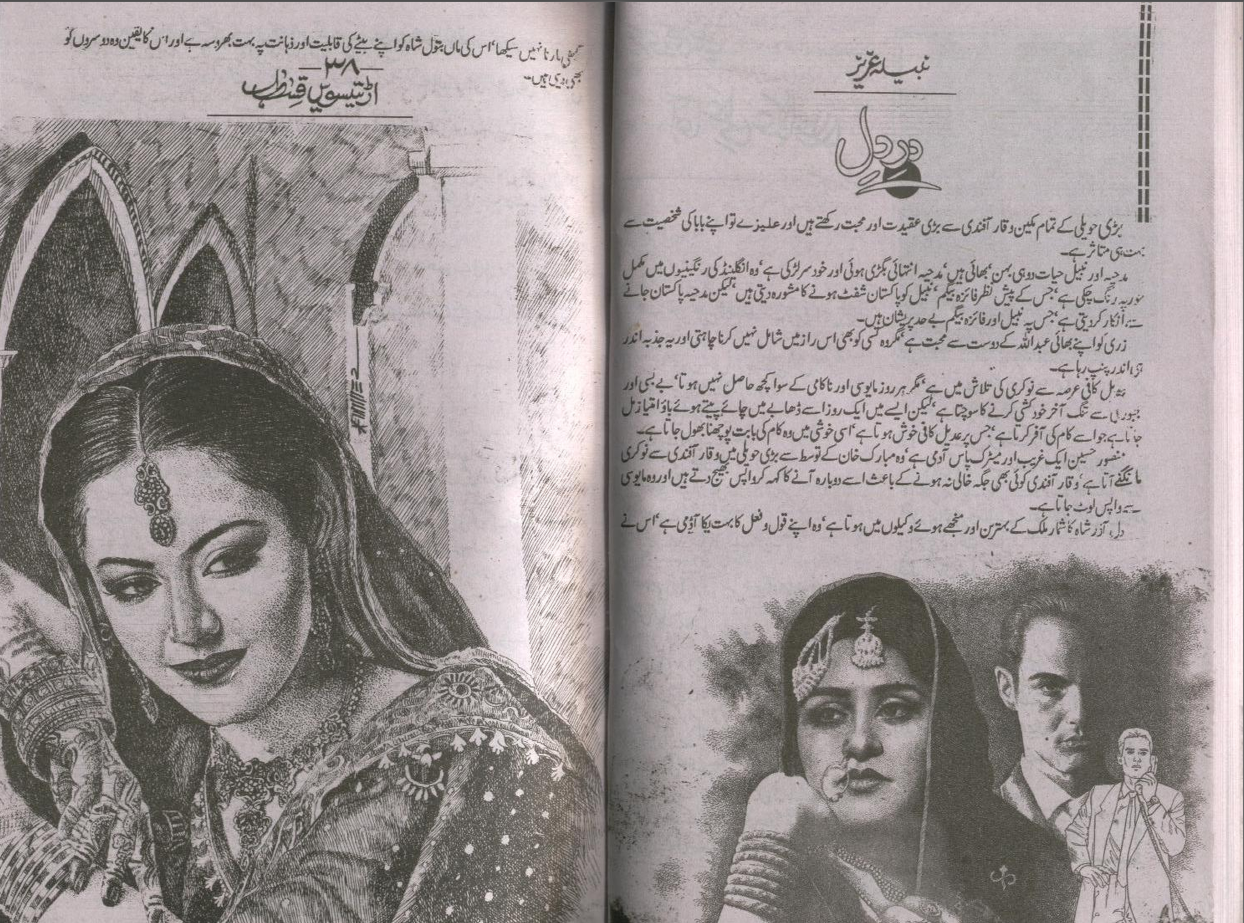 نبیلہ عزیز
دردِل
بڑی حویلی کے تمام مکین وقار آفندی سے بڑی عقیدت اور محبت رکھتے ہیں اور علیزے تو اپنے بابا کی شخصیت سے
بہت ہی متاثر ہے۔
مدحیہ اور نبیل حیات دو ہی بہن، بھائی ہیں، مدحیہ انتہائی بگڑی ہوئی اور خود سر لڑکی ہے، وہ انگلینڈ کی رنگینیوں میں مکمل
طور پہ رنگ چکی ہے، جس کے پیش نظر فائزہ بیگم، نبیل کو پاکستان شفٹ ہونے کا مشورہ دیتی ہیں، لیکن مدحیہ پاکستان جانے
سے انکار کر دیتی ہے، جس پہ نبیل اور فائزہ بیگم بے حد پریشان ہیں۔
زری کو اپنے بھائی عبداللہ کے دوست سے محبت ہے، مگر وہ کسی کو بھی اس راز میں شامل نہیں کرنا چاہتی اور یہ جذبہ اندر
ہی اندر پنپ رہا ہے۔
عدیل کافی عرصہ سے نوکری کی تلاش میں ہے، مگر ہر روز مایوسی اور ناکامی کے سوا کچھ حاصل نہیں ہوتا، بے بسی اور
مجبوری سے تنگ آخر خودکشی کرنے کا سوچتا ہے، لیکن ایسے میں ایک روز اسے ڈھابے میں چائے پیتے ہوئے باؤ امتیاز مل
جاتا ہے جو اسے کام کی آفر کرتا ہے، جس پر عدیل کافی خوش ہوتا ہے، اسی خوشی میں وہ کام کی بابت پوچھنا بھول جاتا ہے۔
منصور حسین ایک غریب اور میٹرک پاس آدمی ہے، وہ مبارک خان کے توسط سے بڑی حویلی میں وقار آفندی سے نوکری
مانگنے آتا ہے، وقار آفندی کوئی بھی جگہ خالی نہ ہونے کے باعث اسے دوبارہ آنے کا کہہ کر واپس بھیج دیتے ہیں اور وہ مایوسی
سے واپس لوٹ جاتا ہے۔
دل آذر شاہ کا شمار ملک کے بہترین اور منجھے ہوئے وکیلوں میں ہوتا ہے، وہ اپنے قول و فعل کا بہت پکا آدمی ہے، اس نے
کبھی ہارنا نہیں سیکھا، اس کی ماں بتول شاہ کو اپنے بیٹے کی قابلیت اور ذہانت پہ بہت بھروسہ ہے اور اس کا یقین وہ دوسروں کو
بھی دیتی ہیں۔
۳۸
اڑتیسویں قسط